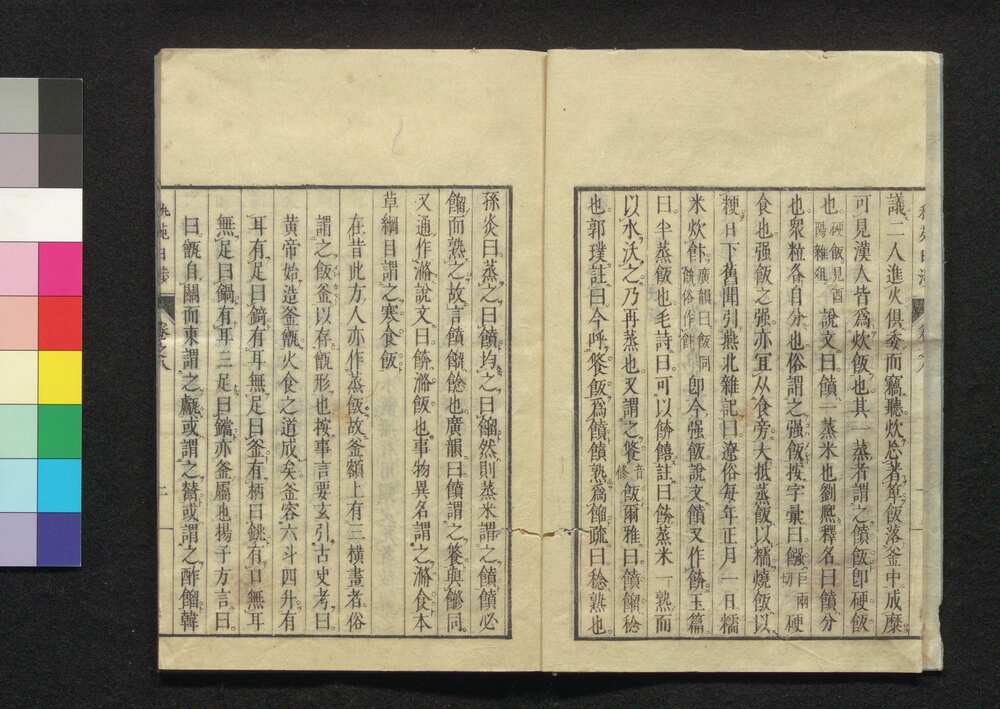 議二人進火俱委而竊聽炊忘著箄飯落釜中成糜
可見漢人皆爲炊飯也其一蒸者謂之饙飯卽硬飯
也硬飯見酉陽雜俎說文曰饙一蒸米也劉熙釋名曰饙分
也衆粒各自分也俗謂之强飯按字彙曰䬗巨兩切硬
食也强飯之强亦宜从食旁大抵蒸飯以糯燒飯以
粳日下舊聞引燕北雜記曰遼俗每年正月一日糯
米炊飰廣韻曰飯同飰俗作餅卽今强飯說文饙又作餴玉篇
曰半蒸飯也毛詩曰可以餴饎註曰餴蒸米一熟而
以水沃之乃再蒸也又謂之餐音修飯爾雅曰饙餾稔
也郭璞註曰今呼餐飯爲饙饙熟爲餾疏曰稔熟也
孫炎曰蒸之曰饙均之曰餾然則蒸米謂之饙饙必
餾而熟之故言饙餾餘也廣韻曰饙謂之餐與餾同
又通作滫說文曰餴滫飯也事物異名謂之滫食本
草綱目謂之寒食飯
在昔此方人亦作蒸飯故釜額上有三橫畫者俗
謂之飯釜以存甑形也按事言要玄引古史考曰
黃帝始造釜甑火食之道成矣釜容六斗四升有
耳有足曰錡有耳無足曰釜有柄曰銚有口無耳
無足曰鍋有耳三足曰鐺亦釜屬也揚子方言曰
曰甑自關而東謂之甗或謂之鬵或謂之酢餾韓